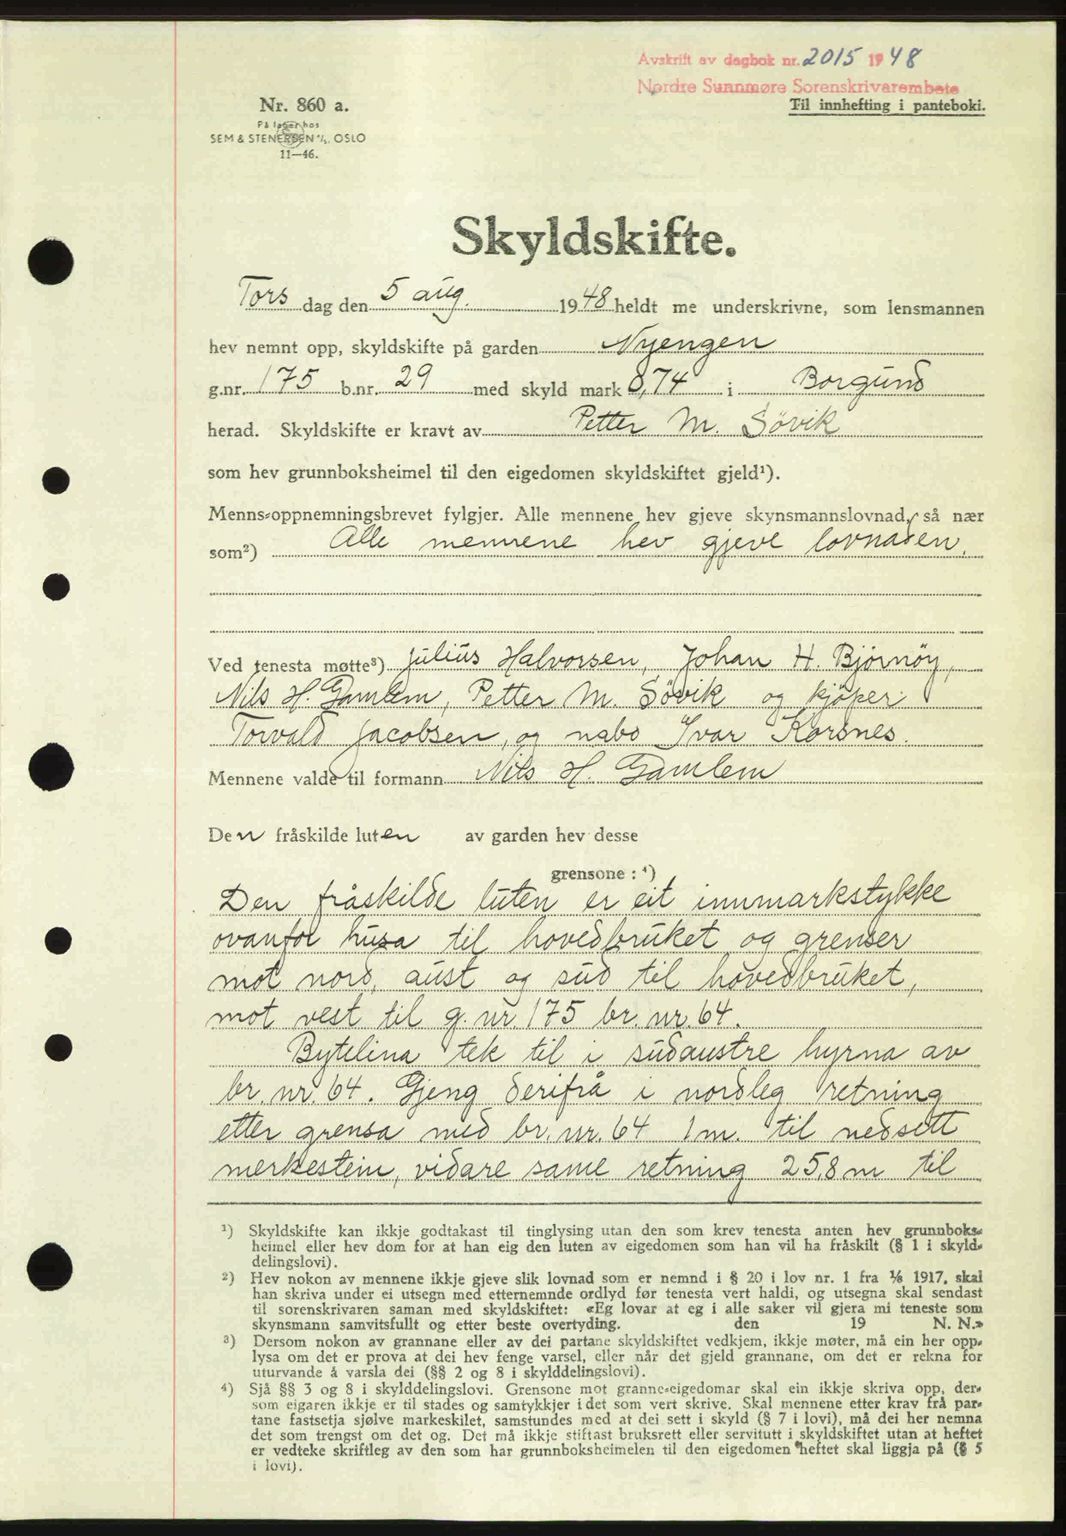 Avskrift av dagbok nr. 2015 1948
Nordre Sunnmøre Sorenskrivarembete
Til innhefting i panteboki.
Nr. 860 a.
På lager hos
SEM & STENERSEN A/S, OSLO
11—46.
Skyldskifte.
Tors dag den 5 aug. 1948 heldt me underskrivne, som lensmannen
hev nemnt opp, skyldskifte på garden Nyengen
g.nr. 175 b.nr. 29 med skyld mark 0,74 i Borgund
herad. Skyldskifte er kravt av Petter M. Sövik
som hev grunnboksheimel til den eigedomen skyldskiftet gjeld¹).
Menns-oppnemningsbrevet fylgjer. Alle mennene hev gjeve skynsmannslovnad, så nær
som²) Alle mennene hev gjeve lovnaden.
Ved tenesta møtte³) Julius Halvorsen, Johan H. Björnöy,
Nils H. Gamlem, Petter M. Sövik og kjöper
Torvald Jacobsen, og nabo Ivar Korsnes.
Mennene valde til formann Nils H. Gamlem
Den fråskilde luten av garden hev desse
grensone : ⁴)
Den fråskilde luten er eit innmarkstykke
ovanfor husa til hovedbruket og grenser
mot nord, aust og sud til hovedbruket,
mot vest til g. nr. 175 br. nr. 64.
Bytelina tek til i sudaustre hyrna av
br. nr. 64. Gjeng derifrå i nordleg retning
etter grensa med br. nr. 64 1 m. til nedsett
merkestein, vidare same retning 25,8 m til
¹) Skyldskifte kan ikkje godtakast til tinglysing utan den som krev tenesta anten hev grunnboks-
heimel eller hev dom for at han eig den luten av eigedomen som han vil ha fråskilt (§ 1 i skyld-
delingslovi).
²) Hev nokon av mennene ikkje gjeve slik lovnad som er nemnd i § 20 i lov nr. 1 fra ⅙ 1917, skal
han skriva under ei utsegn med etternemnde ordlyd før tenesta vert haldi, og utsegna skal sendast
til sorenskrivaren saman med skyldskiftet: «Eg lovar at eg i alle saker vil gjera mi teneste som
skynsmann samvitsfullt og etter beste overtyding. den 19 N. N.»
³) Dersom nokon av grannane eller av dei partane skyldskiftet vedkjem, ikkje møter, må ein her opp-
lysa om det er prova at dei hev fenge varsel, eller når det gjeld grannane, om det er rekna for
uturvande å varsla dei (§§ 2 og 8 i skylddelingslovi).
⁴) Sjå §§ 3 og 8 i skylddelingslovi. Grensone mot granne-eigedomar skal ein ikkje skriva opp, der-
som eigaren ikkje er til stades og samtykkjer i det som vert skrive. Skal mennene etter krav frå par-
tane fastsetja sjølve markeskilet, samstundes med at dei sett i skyld (§ 7 i lovi), må dei her nemna
det som trengst om det og. Det må ikkje stiftast bruksrett eller servitutt i skyldskiftet utan at heftet
er vedteke skriftleg av den som har grunnboksheimelen til den eigedomen heftet skal liggja på (§ 5
i lovi).